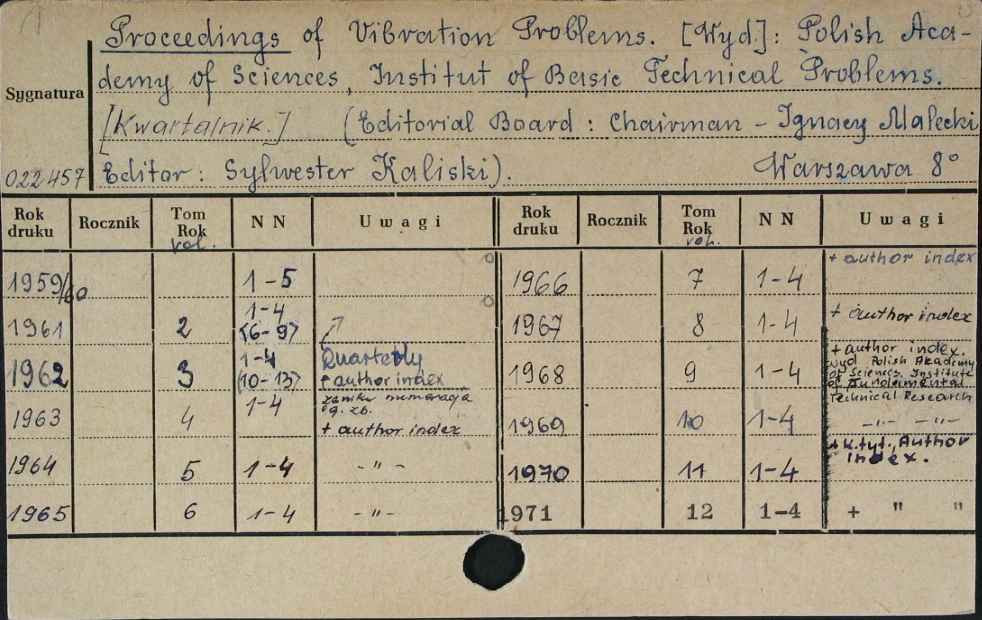 Proceedings of Vibration Problems. [Wyd.]: Polish Aca-
demy of Sciences, Institut of Basic Technical Problems.
[Kwartalnik.] (Editorial Board: Chairman - Ignacy Malecki
Editor: Sylwester Kaliski). Warszawa 8°
Sygnatura
022457
Rok druku Rocznik Tom Rok vol. N N Uwagi Rok druku Rocznik Tom Rok vol. N N Uwagi
1959/60 1-5 1966 7 1-4 + author index
1961 2 1-4 (6-9) 1967 8 1-4 + author index
1962 3 1-4 (10-13) Quarterly + author index 1968 9 1-4 + author index. wyd Polish Akademy of Sciences. Institute of Fundamental Technical Research
1963 4 1-4 numeracja og. zb. + author index 1969 10 1-4 -"- -"-
1964 5 1-4 -"- 1970 11 1-4 + k.tyt., Author index.
1965 6 1-4 -"- 1971 12 1-4 + " "